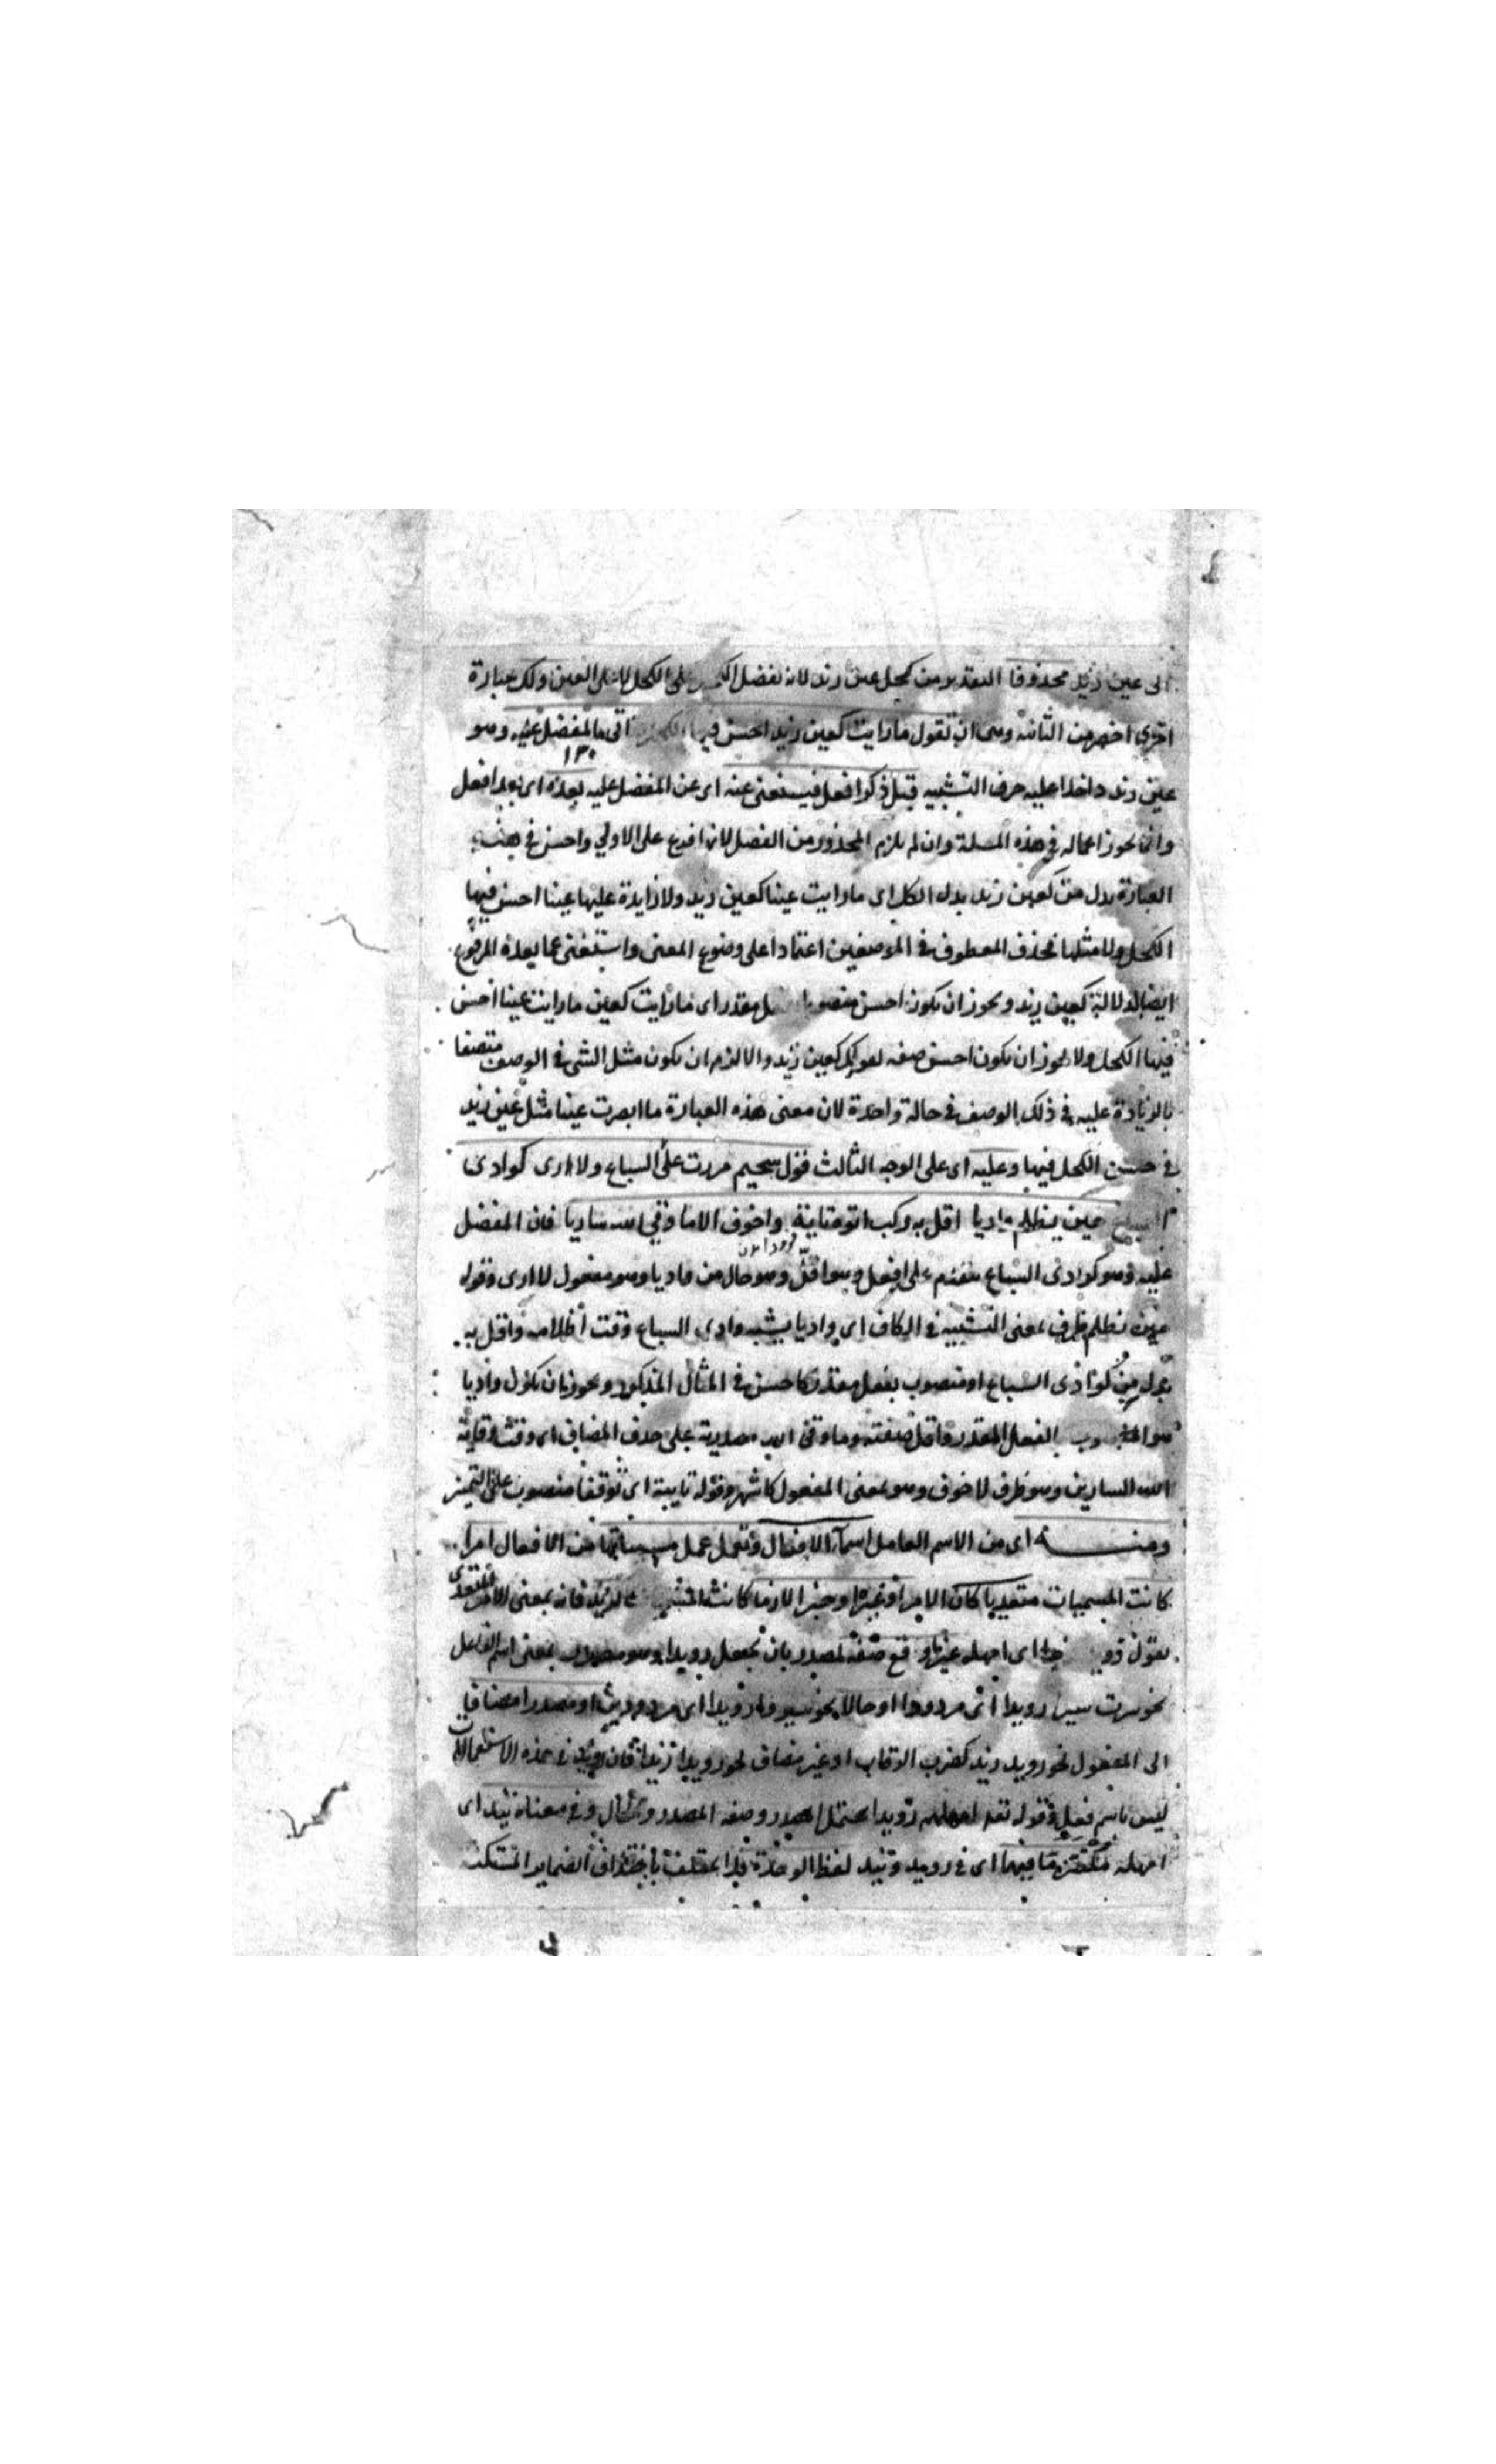 الى عين زيد محذوفا التقدير من كحل عين زيد لانه تفضل الكحل على الكحل لا على العين ولك عبارة
اخرى اخصر من الثانية وهى ان تقول ما رايت كعين زيد احسن فيها الكحل اتى بالمفضل عليه وهو
١٣٠
عين زيد داخلا عليه حرف التشبيه قبل ذكر افعل فيستغنى عنه اى عن المفضل عليه بعده اى بعد افعل
وانما يجوز اعماله فى هذه المسلة وان لم يلزم المحذور من الفصل لانها فرع على الاولى واحسن فى هذه
العبارة بدل من كعين زيد بدل الكل اى ما رايت عينا كعين زيد ولا زايدة عليها عينا احسن فيها
الكحل ولا مثلها فحذف المعطوف فى الموضعين اعتمادا على وضوح المعنى واستغنى عما بعده المرفوع
ايضا لدلالة كعين زيد ويجوز ان يكون احسن منصوبا بفعل مقدر اى ما رايت كعين ما رايت عينا احسن
فيها الكحل ولا يجوز ان يكون احسن صفه لقولك كعين زيد والا لزم ان يكون مثل الشى فى الوصف متصفا
بالزيادة عليه فى ذلك الوصف فى حالة واحدة لان معنى هذه العبارة ما ابصرت عينا مثل عين زيد
فى حسن الكحل فيها وعليه اى على الوجه الثالث قول سحيم مررت على السباع ولا ارى كوادى
السباع حين يظلم واديا اقل به ركب اتوه تاية واخوف الا ما وقى الله ساريا فان المفضل
عليه وهو كوادى السباع متقدم على افعل وهو اقل وهو حال من واديا وهو مفعول لا ارى وقوله
حين يظلم ظرف بمعنى التشبيه فى الكاف اى واديا يشبه وادى السباع وقت اظلامه واقل به
بدل من كوادى السباع او منصوب بفعل مقدر كاحسن فى المثال المذكور ويجوز ان يكون واديا
هو المنصوب بالفعل المقدر واقل صفته وما وقى الله مصدرية على حذف المضاف اى وقت وقاية
الله السارين وهو ظرف لاخوف وهو بمعنى المفعول كاشهر وقوله تاية اى توقفا منصوب على التميز
ومنه اى من الاسم العامل اسماء الافعال وتعمل عمل مسمياتها من الافعال امرا
كانت المسميات متعديا كان الامر او غيره او خبرا لازما كانت زيد فان بمعنى الامر المتعدى
تقول رويد زيدا اى امهله غير وقع صفة لمصدر بان يجعل رويدا وهو مصدر بمعنى اسم الفاعل
نحو سرت سيرا رويدا اى مرودا او حالا نحو سيروا رويدا اى مرودين او مصدرا مضافا
الى المفعول نحو رويد زيد كضرب الرقاب او غير مضاف نحو رويدا زيدا فان رويد فى هذه الاستعمالات
ليس باسم فعل وقوله تعه امهلهم رويدا يحتمل المصدر وصفه المصدر والحال وفى معناه تيد اى
امهله فيهما اى فى رويد وتيد لفظ الوحدة فلا يختلف باختلاف الضماير المستكنة